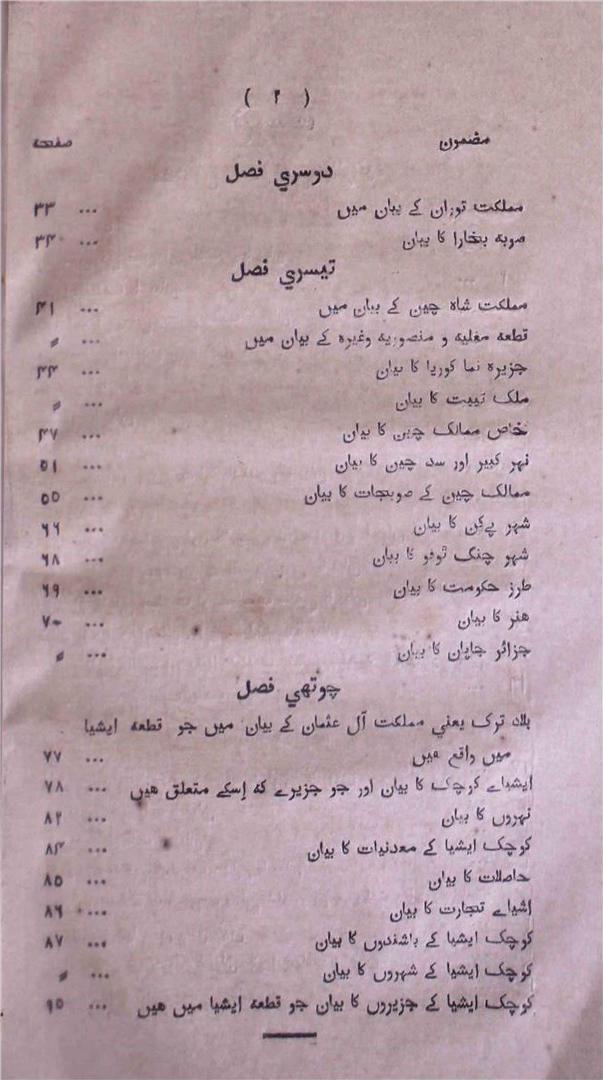 ( ۲ )
مضمون صفحه
دوسري فصل
مملکت توران کے بیان میں ... ۳۳
صوبه بخارا کا بیان ... ۳۴
تیسري فصل
مملکت شاہ چین کے بیان میں ... ۴۱
قطعه مغلیه و منصوریه وغیرہ کے بیان میں ... 〃
جزیرہ نما کوریا کا بیان ... ۴۴
ملک تیبت کا بیان ... 〃
خاص ممالک چین کا بیان ... ۴۷
نہر کبیر اور سد چین کا بیان ... ۵۱
ممالک چین کے صوبجات کا بیان ... ۵۵
شہر پےکن کا بیان ... ۶۶
شہر چنگ توفو کا بیان ... ۶۸
طرز حکومت کا بیان ... ۶۹
هنر کا بیان ... ۷۰
جزائر جاپان کا بیان ... 〃
چوتهي فصل
بلاد ترک یعنی مملکت آل عثمان کے بیان میں جو قطعه ایشیا
میں واقع هیں ... ۷۷
ایشیاے کوچک کا بیان اور جو جزیرے که اِسکے متعلق هیں ... ۷۸
نہروں کا بیان ... ۸۲
کوچک ایشیا کے معدنیات کا بیان ... ۸۴
حاصلات کا بیان ... ۸۵
اشیاے تجارت کا بیان ... ۸۶
کوچک ایشیا کے باشندوں کا بیان ... ۸۷
کوچک ایشیا کے شہروں کا بیان ... 〃
کوچک ایشیا کے جزیروں کا بیان جو قطعه ایشیا میں هیں ... ۹۵